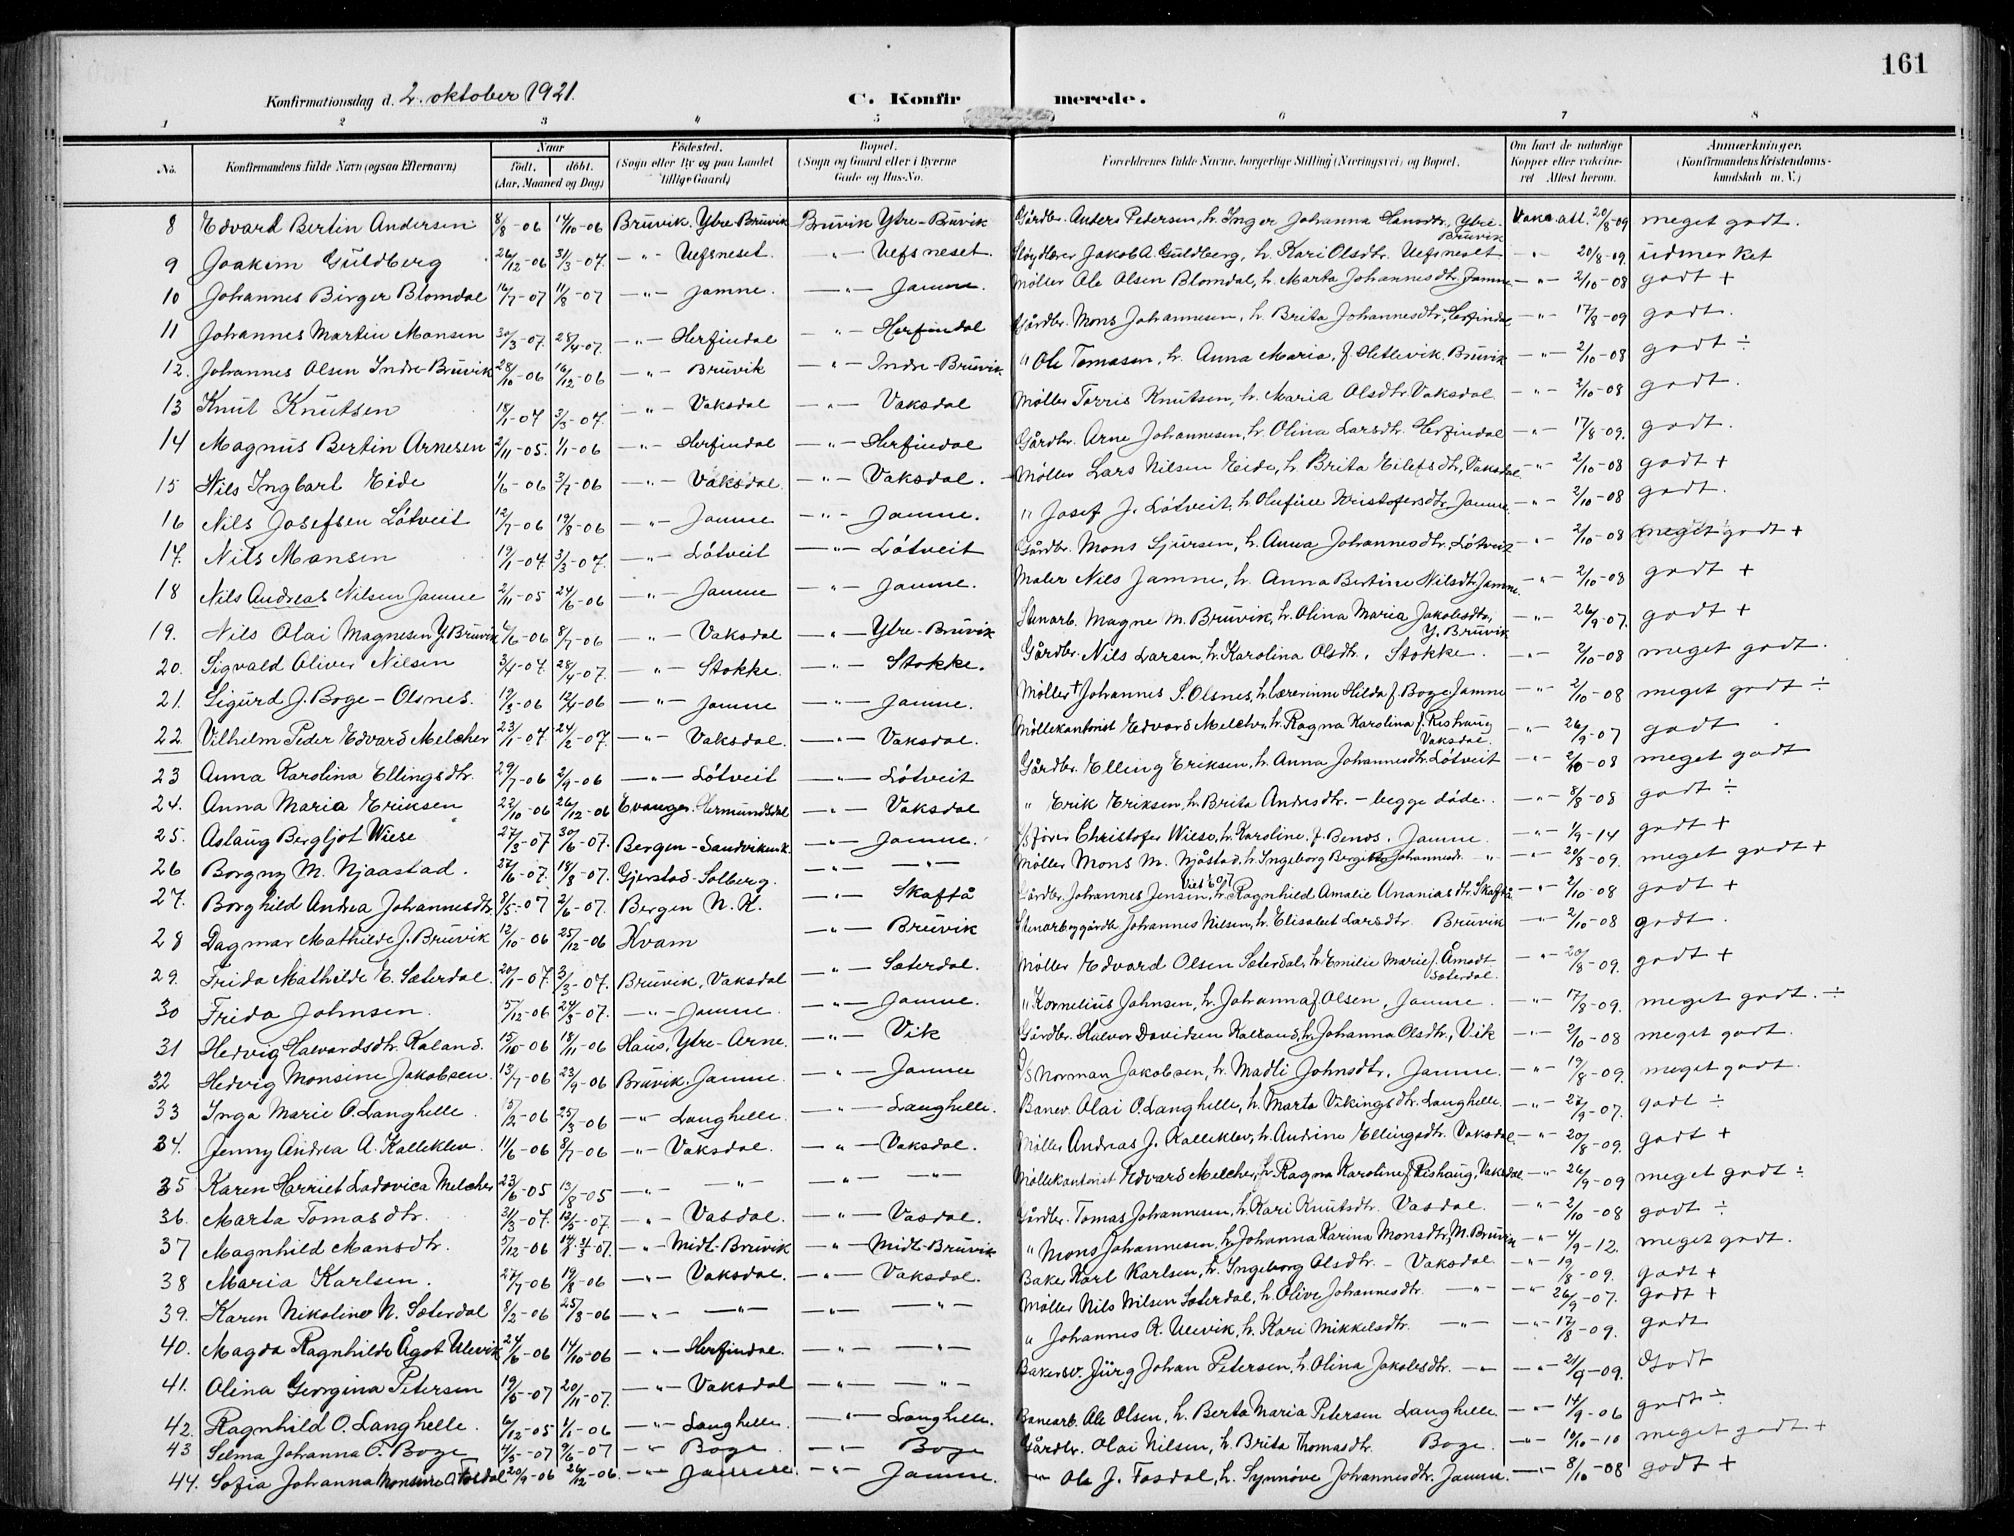 161
Konfirmationsdag d. 2. oktober 1921. C. Konfirmerede.
1 2 3 4 5 6 7 8
No. Konfirmandens fulde Navn (ogsaa Efternavn) Naar født, døbt. (Aar, Maaned og Dag) Fødested. (Sogn eller By og paa Landet tillige Gaard) Bopæl. (Sogn og Gaard eller i Byerne Gade og Hus-No. Forældrenes fulde Navne, borgerlige Stilling (Næringsvei) og Bopæl. Om havt de naturlige Kopper eller vaccineret Attest herom. Anmærkninger. (Konfirmandens Kristendomskundskab m. V.)
8 Edvard Bertin Andersen 8/8-06 14/10-06 Bruvik, Ytre-Bruvik Bruvik Ytre-Bruvik Gårdbr. Anders Petersen, h. Inger Johanna Hansdtr., Ytre-Bruvik Vaks. att. 20/8-09 meget godt.
9 Joakim Guldberg 26/12-06 31/3-07. -"- Uefsneset. -"- Uefsneset. Sløydlærer Jakob A. Guldberg, h. Kari Olsdtr. Uefsneset -"- 20/8-09. udmerket
10 Johannes Birger Blomdal 16/7-07 11/8-07 -"- Jamne. -"- Jamne. Møller Ole Olsen Blomdal, h. Marta Johannesdtr. Jamne -"- 2/10-08 godt +
11 Johannes Martin Monsen 30/3-07. 28/4-07. -"- Herfindal -"- Herfindal Gårdbr. Mons Johannesen, h. Brita Johannesdtr., Herfindal -"- 17/8-09 godt.
12. Johannes Olsen Indre-Bruvik 28/10-06 16/12-06 -"- Bruvik -"- Indre-Bruvik " Ole Tomasen, h. Anna Maria, f. Hetlevik. Bruvik -"- 2/10-08 godt ÷
13 Knut Knutsen 18/1-07 3/3-07. -"- Vaksdal -"- Vaksdal Møller Torris Knutsen, h. Maria Olsdtr. Vaksdal -"- 2/10-08 godt.
14 Magnus Bertin Arnesen 2/11-05. 1/1-06 -"- Herfindal -"- Herfindal Gårdbr. Arne Johannesen, h. Olina Larsdtr. Herfindal -"- 17/8-09. godt.
15 Nils Ingbart Eide 1/6-06 3/7-06 -"- Vaksdal. -"- Vaksdal. Møller Lars Nilsen Eide, h. Brita Eilefsdtr, Vaksdal -"- 2/10-08 godt +
16 Nils Josefsen Låtveit 12/7-06 19/8-06 -"- Jamne -"- Jamne. " Josef J. Låtveit, h. Olufine Kristofersdtr, Jamne -"- 2/10-08 godt.
17. Nils Monsen 19/1-07. 3/3-07. -"- Låtveit -"- Låtveit Gårdbr. Mons Sjursen, h. Anna Johannesdtr., Låtveit -"- 2/10-08 meget godt +
18 Nils Andreas Nilsen Jamne 2/11-05 24/6-06 -"- Jamne -"- Jamne. Maler Nils Jamne, h. Anna Bertine Nilsdtr. Jamne. -"- 2/10-08 godt +
19. Nils Olai Magnesen Y. Bruvik 6/6-06 8/7-06 -"- Vaksdal -"- Ytre-Bruvik Stenarb. Magne M. Bruvik, h. Olina Maria Jakobsdtr, Y. Bruvik -"- 26/9-07. godt +
20. Sigvald Oliver Nilsen 3/4-07. 28/4-07. -"- Stokke. -"- Stokke. Gårdbr. Nils Larsen, h. Karolina Olsdtr, Stokke. -"- 2/10-08 meget godt.
21. Sigurd J. Boge-Olsnes. 19/3-06 12/4-06 -"- Jamne -"- Jamne. Møller + Johannes S. Olsnes, h. lærerinne Hilda f. Boge Jamne -"- 2/10-08 meget godt ÷
22 Vilhelm Peder Edvard Melcher 23/1-07. 24/2-07. -"- Vaksdal. -"- Vaksdal. Møllekontorist Edvard Melcher, h. Ragna Karolina f. Rishaug Vaksdal. -"- 26/9-07 godt.
23 Anna Karolina Ellingsdtr. 29/7-06 2/9-06 -"- Låtveit -"- Låtveit Gårdbr. Elling Eriksen, h. Anna Johannesdtr. Låtveit -"- 2/10-08 meget godt
24. Anna Maria Eriksen 22/10-06 26/12-06 Evanger. Hermundsdal -"- Vaksdal " Erik Eriksen, h. Brita Andersdtr. - begge døde. -"- 8/8-08 godt ÷
25. Aslaug Bergljot Wiese 27/3-07 30/6-07. Bergen-Sandviken k. -"- Jamne. Christofer Wiese, h. Karoline, f. Benos. Jamne. -"- 1/9-14 godt +
26 Borgny M. Njaastad. 27/6-07. 18/8-07. Gjerstad-Solberg. -"- -"- Møller Mons M. Njåstad, h. Ingeborg Bergitte Johannesdr. -"- -"- 20/8-09. meget godt +
27. Borghild Andrea Johannesdtr. 8/5-07 2/6-07. Bergen N. K. -"- Skaftå Gårdbr. Johannes Jensen, h. Ragnhild Amalie Ananiasdtr. Skaftå -"- 2/10-08 godt +
28 Dagmar Mathilde J. Bruvik 12/10-06 25/12-06 Kvam -"- Bruvik Johannes Nilsen, h. Elisabet Larsdtr. Bruvik -"- 2/10-08 godt.
29. Frida Mathilde E. Sæterdal. 20/1-07. 3/3-07. Bruvik, Vaksdal -"- Sæterdal. Møller Edvard Olsen Sæterdal, h. Emilie Marie f. Åmodt Sæterdal. -"- 20/8-09. godt +
30 Frida Johnsen. 5/12-06 24/3-07. -"- Jamne. -"- Jamne. " Kornelius Johnsen, h. Johanna f. Olsen, Jamne. -"- 17/8-09. meget godt. ÷
31 Hedvig Halvardsdtr. Kaland. 15/10-06 18/11-06 Haus, Ytre-Arne. -"- Vik Gårdbr. Halvor Davidsen Kalland, h. Johanna Olsdtr., Vik -"- 2/10-08 meget godt.
32 Hedvig Monsine Jakobsen. 13/7-06 23/9-06 Bruvik, Jamne. -"- Jamne Norman Jakobsen, h. Madli Johnsdtr., Jamne. -"- 19/8-09. meget godt.
33 Inga Marie O. Langhelle. 15/2-06 25/3-06 -"- Langhelle. -"- Langhelle. Banev. Olai O. Langhelle, h. Marta Vikingsdtr. Langhelle. -"- 27/9-07. godt ÷
34. Jenny Andrea A. Kalleklev. 11/6-06 8/7-06 -"- Vaksdal. -"- Vaksdal. Møller Andreas J. Kalleklev, h. Andrine Ellingsdtr. Vaksdal. -"- 20/8-09. godt +
35 Karen Harriet Ladovica Melcher 23/6-05 13/8-05 -"- -"- -"- -"- Møllekontorist Edvard Melcher, h. Ragna Karoline f. Rishaug, Vaksdal -"- 26/9-09 meget godt ÷
36. Marta Tomasdtr. 31/3-07. 12/5-07. -"- Vasdal. -"- Vasdal. Gårdbr. Tomas Johannesen, h. Kari Knutsdtr. Vasdal. -"- 2/10-08 godt ÷
37 Magnhild Monsdtr. 5/12-06 31/3-07. -"- Midt-Bruvik -"- Midt-Bruvik " Mons Johannesen, h. Johanna Karina Monsdtr, M. Bruvik -"- 4/9-12. meget godt.
38 Maria Karlsen. 27/7-06 19/8-06 -"- Vaksdal. -"- Vaksdal. Baker Karl Karlsen, h. Ingeborg Olsdtr. - Vaksdal. -"- 19/8-09. godt +
39. Karen Nikoline N. Sæterdal 8/2-06 25/3-06 -"- -"- -"- -"- Møller Nils Nilsen Sæterdal, h. Olive Johannesdtr. -"- -"- 26/9-07. godt +
40. Magda Ragnhilde Ågot Ulevik 24/6-06 14/10-06 -"- Herfindal. -"- -"- " Johannes K. Ulevik, h. Kari Mikkelsdtr. -"- -"- 17/8-09. godt
41. Olina Georgina Petersen 19/5-07 20/11-07. -"- Vaksdal -"- -"- Bakersv. Jürg Johan Petersen, h. Olina Jakobsdtr. -"- -"- 21/9-09. Godt
42. Ragnhild O. Langhelle. 6/12-05 1/1-06 -"- Langhelle. -"- Langhelle. Banearb. Ole Olsen, h. Berta Maria Petersen Langhelle. -"- 14/9-06 godt ÷
43 Selma Johanna O. Boge 4/5-07 9/6-07 -"- Boge. -"- Boge Gårdbr. Olai Nilsen, h. Brita Thomasdtr. Boge. -"- 10/10-10 meget godt +
44. Sofia Johanna Monsine O. Fosdal 20/9-06 26/12-06. -"- Jamne. -"- Jamne. -"- Ole J. Fosdal, h. Synnøve Johannesdtr. Jamne. -"- 8/10-08 godt +